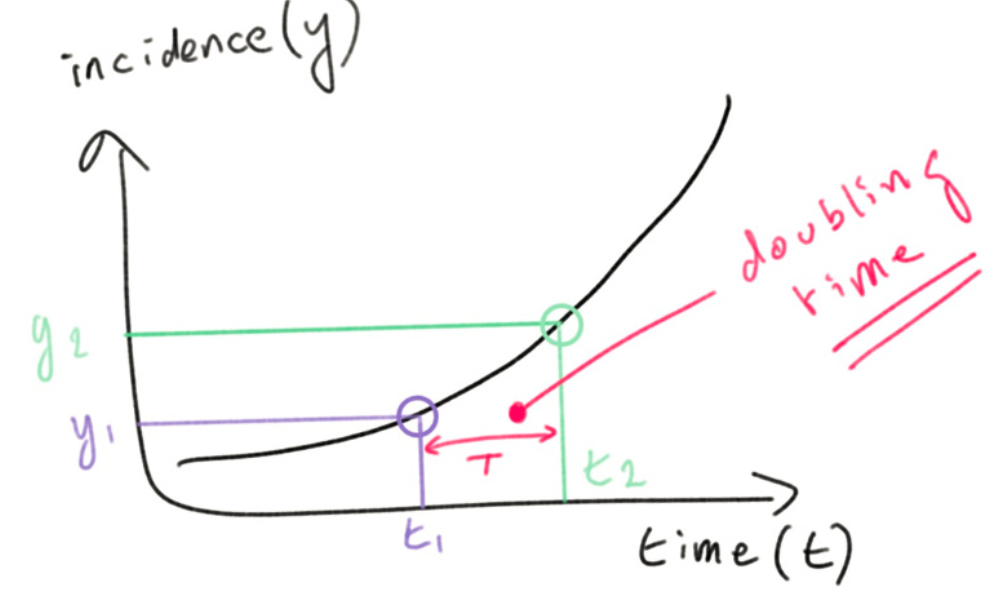 incidence(y)
doubling
time
y2
y1
T
t2
t1
time(t)